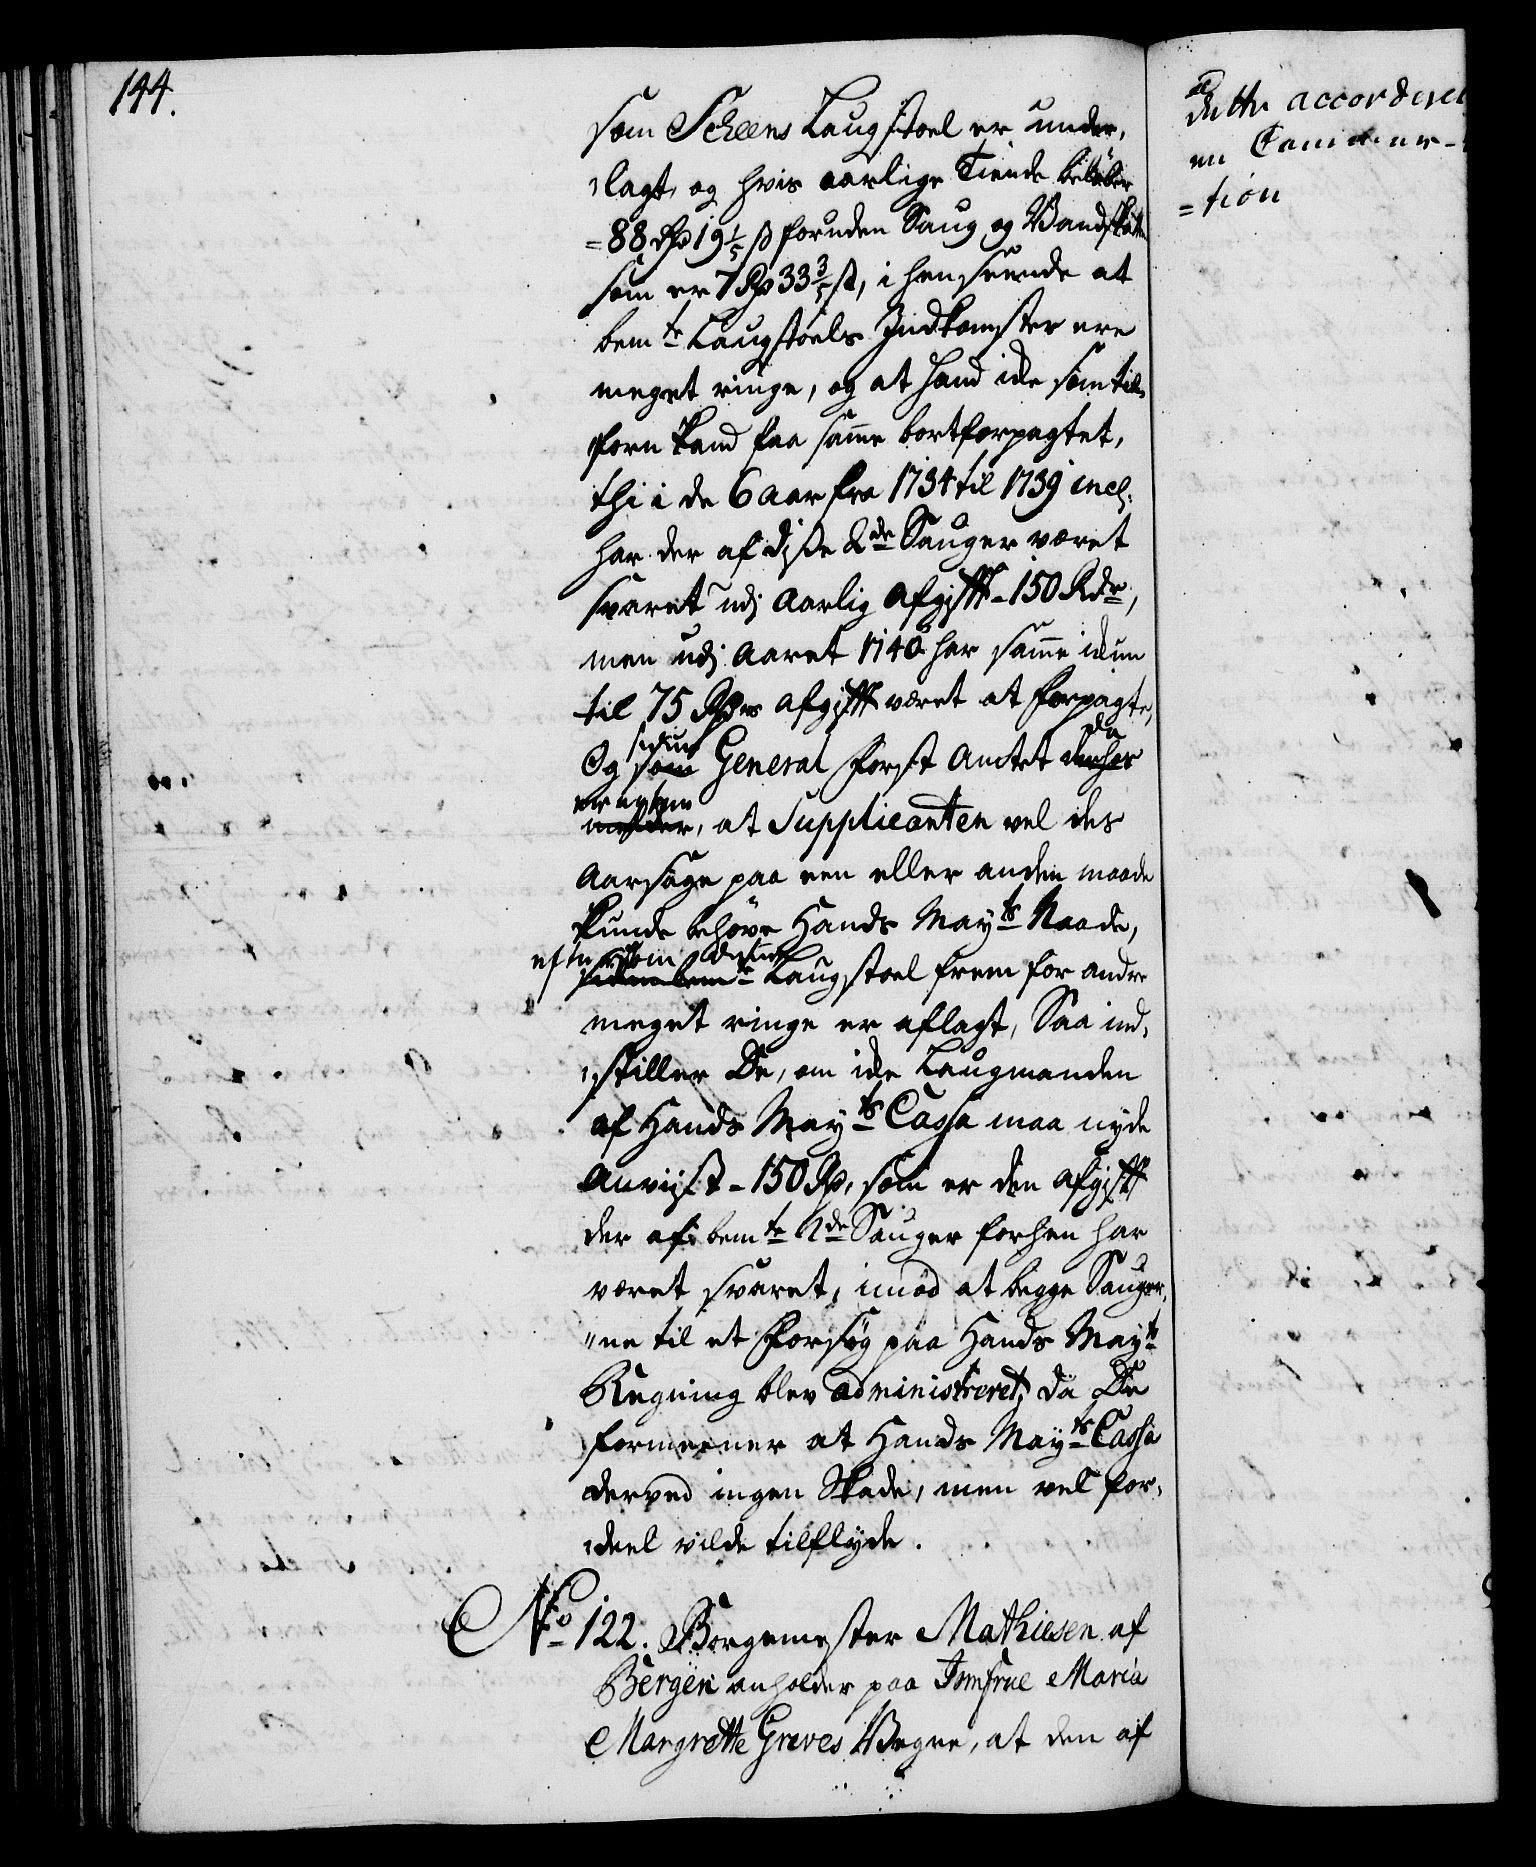 144.
som Scheens Laugstoel er under,
lagt, og hvis aarlige Tiende beløber
=88 Rdr 19 1/5 ß foruden Saug og Bandskatten
som er 7 Rdr 33 3/5 ß, i henseende at
bemte Laugstoels Indkomster ere
meget ringe, og at hand icke som til,
forn kand faa samme bortforpagtet,
thi i de 6 aar fra 1734 til 1739 incl:
har der af disse 2de Sauger været
svaret udj aarlig afgifft - 150 Rdr,
men udj aaret 1740 har samme ickun
til 75 Rdrs afgifft været at forpagte,
Og som siden General Forst Amtet derhos da
melder, at Supplicanten vel des
Aarsage paa een eller anden maade
kunde behøve Hands Mayts Naade,
eftersom siden bemte denne Laugstoel frem for andre
meget ringe er aflagt, Saa ind,
stiller De, om icke Laugmanden
af Hands Mayts Cassa maa nyde
anviist - 150 Rdr, som er den afgifft
der af bemte 2de Sauger forhen har
været svaret, imod at begge Sauger,
ne til et Forsøg paa Hands Mayts
Regning blev administreret, da De
formeener at Hands Mayts Cassa
derved ingen Skade, men vel for,
deel vilde tilflyde.
No 122. Borgemester Mathiesen af
Bergen anholder paa Jomfrue Maria
Margrette Greves Vegne, at den af
dette accorderet
en
=tion